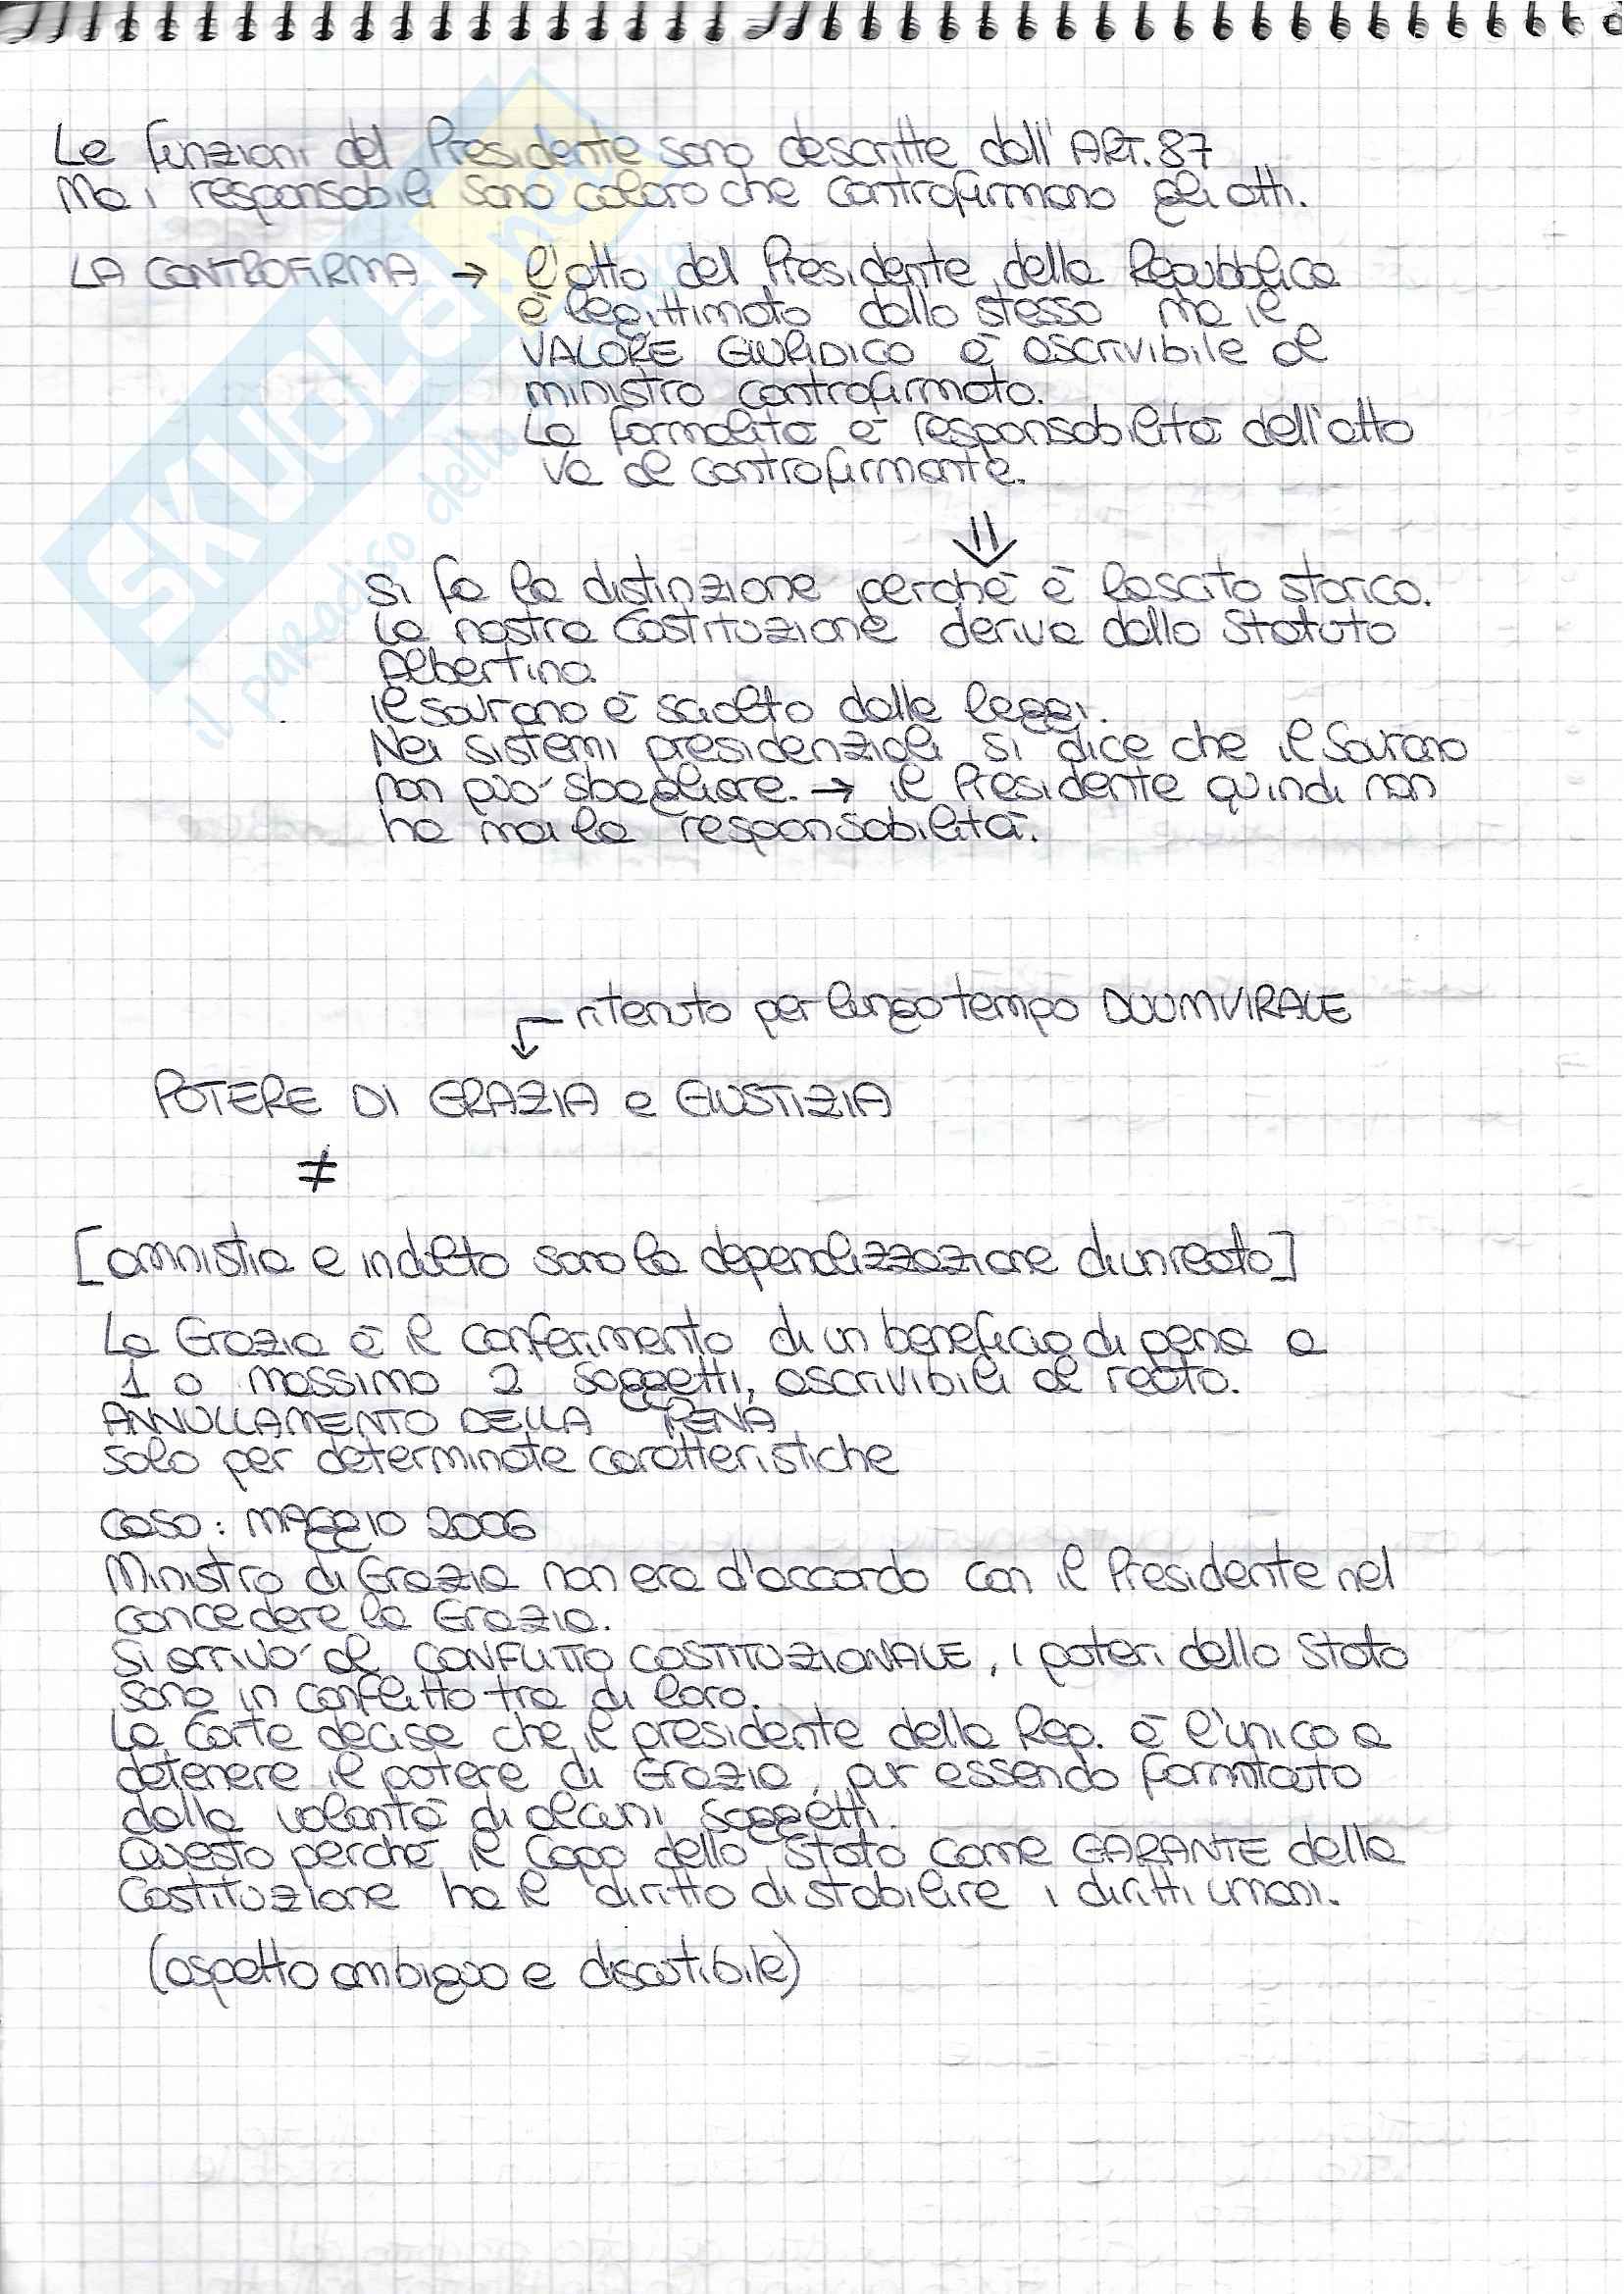 SKUOLA.net
il paradiso dello
Le funzioni del Presidente sono descritte dall'ART. 87
Ma i responsabili sono coloro che controfirmano gli atti.
LA CONTROFIRMA → l'atto del Presidente della Repubblica
è legittimato dallo stesso ma il
VALORE GIURIDICO è ascrivibile al
ministro controfirmato.
La formalità e responsabilità dell'atto
va al controfirmante.
⇓
Si fa la distinzione perché è lascito storico.
La nostra Costituzione deriva dallo Statuto
Albertino.
Il sovrano è sciolto dalle leggi.
Nei sistemi presidenziali si dice che il Sovrano
non può sbagliare. → il Presidente quindi non
ha mai la responsabilità.
ritenuto per lungo tempo DUUMVIRALE
POTERE DI GRAZIA e GIUSTIZIA
≠
[amnistia e indulto sono la depenalizzazione di un reato]
La Grazia è il conferimento di un beneficio di pena a
1 o massimo 2 soggetti, ascrivibili al reato.
ANNULLAMENTO DELLA PENA
solo per determinate caratteristiche
caso: MAGGIO 2006
Ministro di Grazia non era d'accordo con il Presidente nel
concedere la Grazia.
Si arrivò al CONFLITTO COSTITUZIONALE, i poteri dello Stato
sono in conflitto tra di loro.
La Corte decise che il presidente della Rep. è l'unico a
detenere il potere di Grazia, pur essendo
dalla volontà di alcuni soggetti.
Questo perché il Capo dello Stato come GARANTE della
Costituzione ha il diritto di stabilire i diritti umani.
(aspetto ambiguo e discutibile)